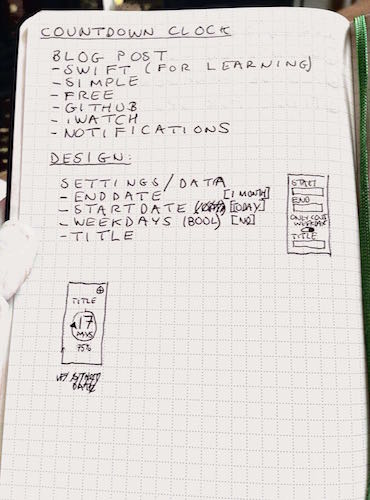 COUNTDOWN CLOCK
BLOG POST
- SWIFT (FOR LEARNING)
- SIMPLE
- FREE
- GITHUB
- iWATCH
- NOTIFICATIONS
DESIGN:
SETTINGS/DATA
- ENDDATE [1 MONTH]
- STARTDATE [0DAY]
- WEEKDAYS (BOOL) [NO]
- TITLE
START
END
ONLY COUNT
WEEKDAY
TITLE
TITLE
17
DAYS
75%